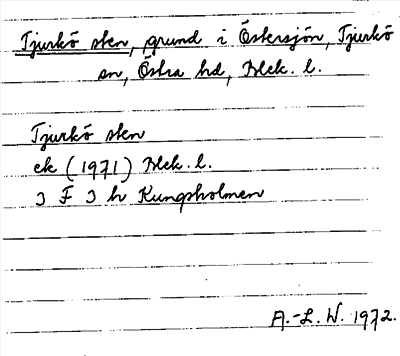 Tjurkö sten, grund i Östersjön, Tjurkö
sn, Östra hd, Blek. l.
Tjurkö sten
ek (1971) Blek. l.
3 F 3 h Kungsholmen
A.-L. W. 1972.